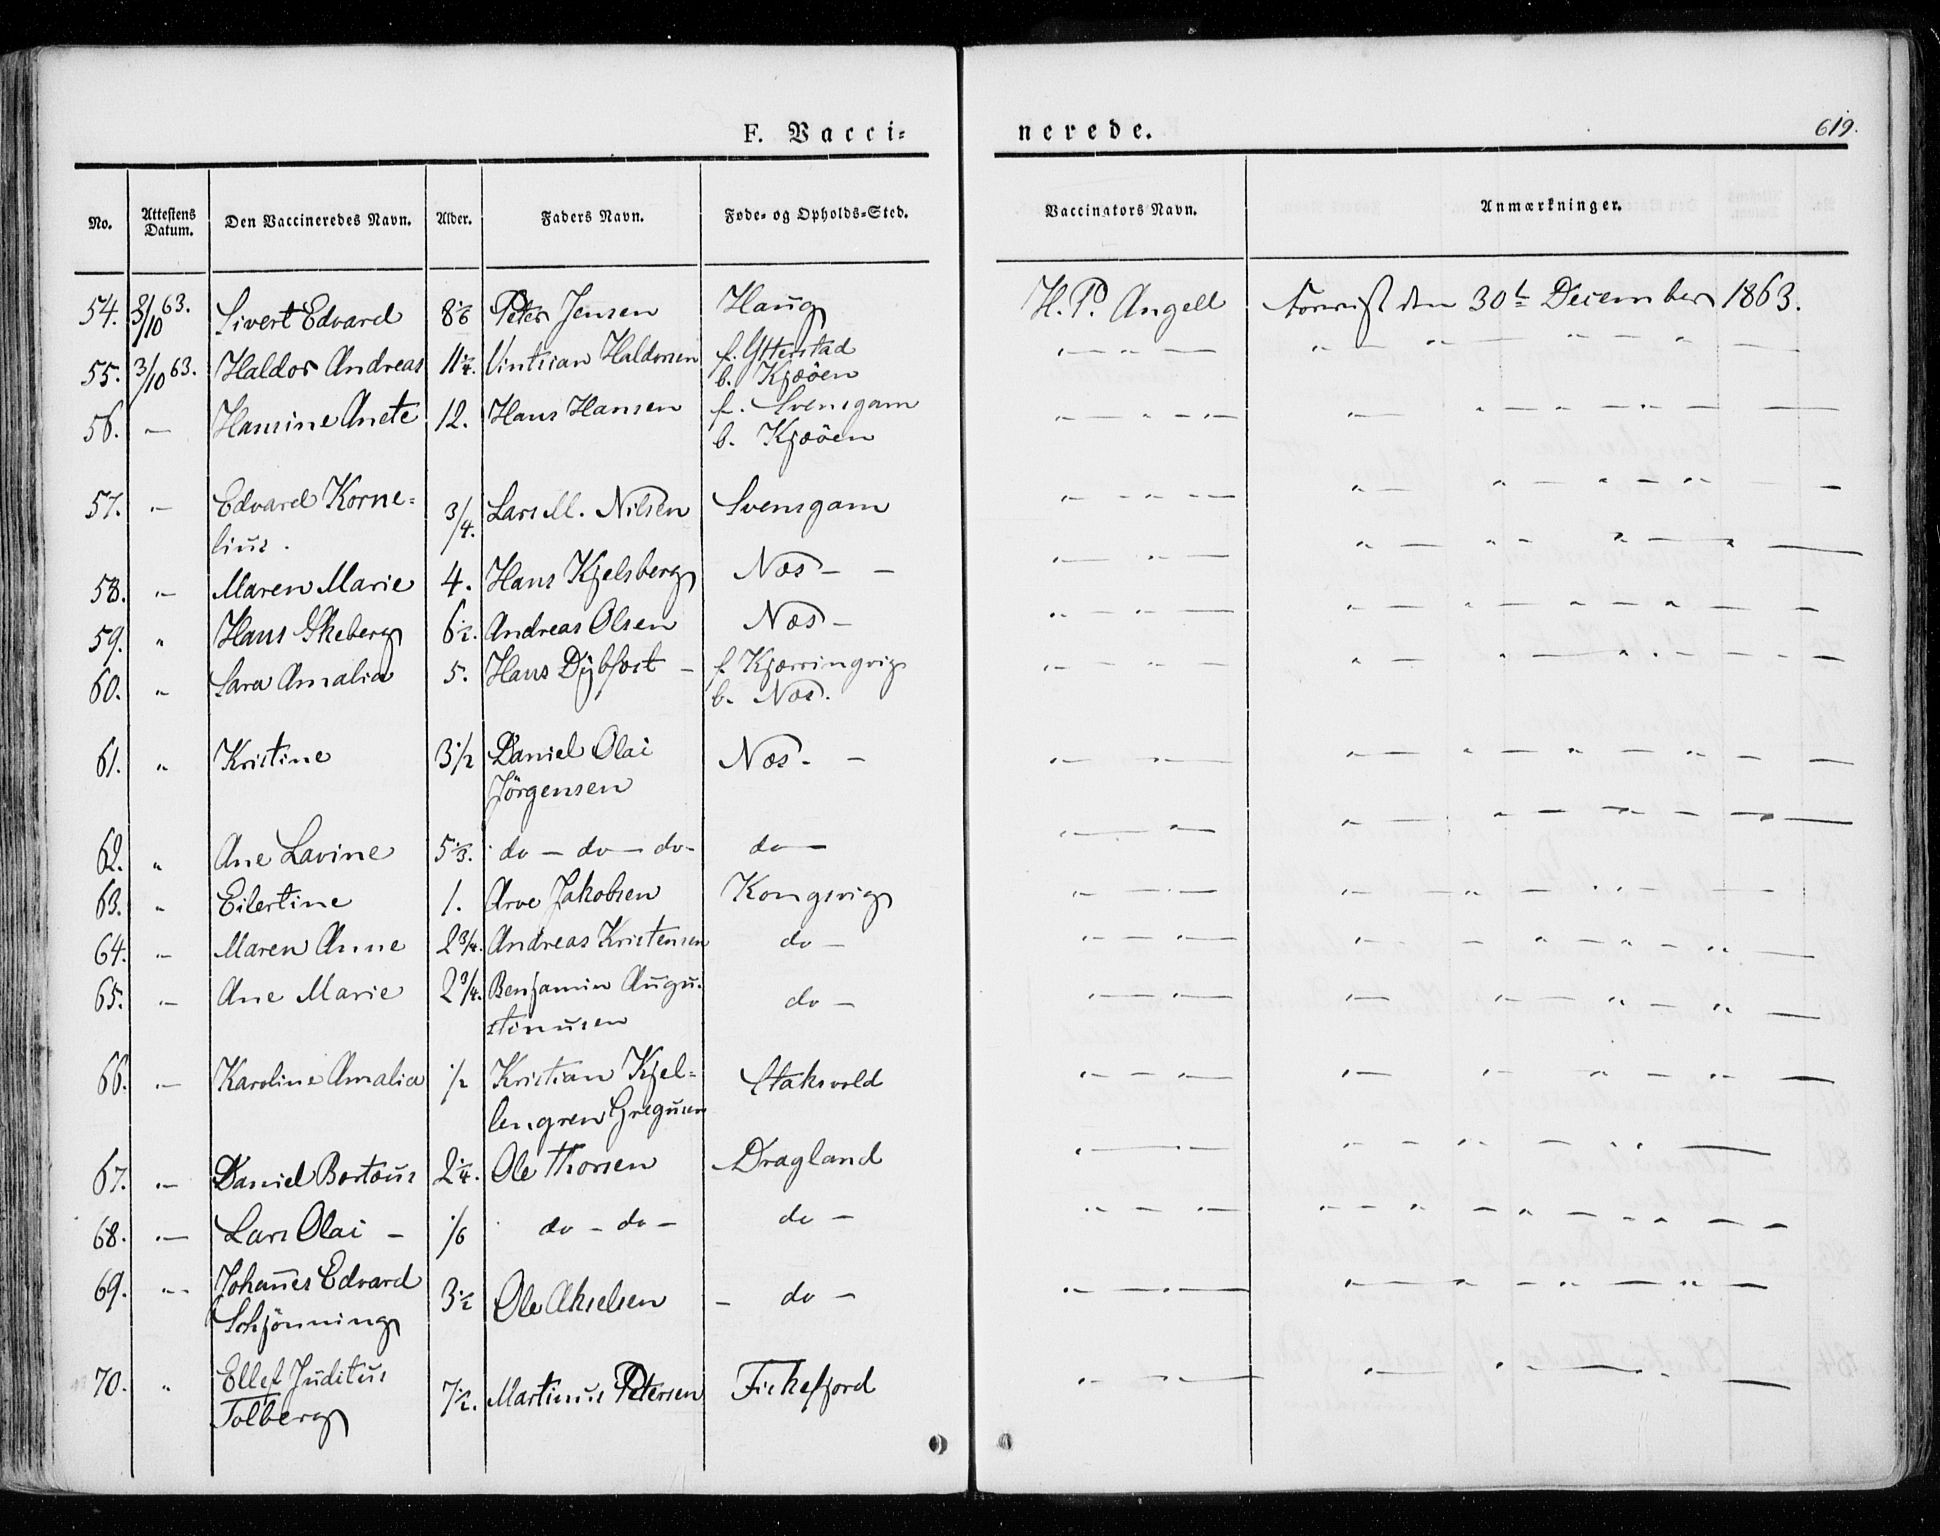 F. Vacci-
nerede.
619.
No. Attestens Datum. Den Vaccineredes Navn. Alder. Faders Navn. Føde- og Opholds-Sted. Vaccinators Navn. Anmærkninger.
54. 3/10 63. Sivert Edvard 8 1/6 Peter Jensen Haug H. P. Angell den 30t December 1863.
55. 3/10 63. Haldor Andreas 11 1/4. Haldorsen f. Ytterstad
b. Kjøøen
56. - Hansine Anete 12. Hans Hansen f. Svensgam
b. Kjøøen
57. - Edvard Korne-
lius. 3/4. Lars M. Nilsen Svensgam
58. - Maren Marie 4. Hans Kjelsberg Næs - -
59. " Hans Ekeberg 6 1/2. Andreas Olsen Næs -
60. " Sara Amalia 5. Hans Dybfest - f. Kjærringvig
b. Næs.
61. " Kristine 3 1/2 Daniel Olai Næs. -
Jørgensen
62. " Ane Lavine 5 1/3. do - do - do - do -
63. " Eilertine 1. Arve Jakobsen Kongsvig
64. - Maren Anne 2 3/4. Andreas Kristensen do -
65. - Ane Marie 2 3/4. Benjamin Augu-
stinusen do -
66. - Karoline Amalia 1/2 Kristian Kjel-
lengren Gregusen Staksvold
67. - Daniel Bertæus 2 1/4. Ole Thorsen Dragland
68. - Lars Olai - 1/6 do - do - do -
69. - Johannes Edvard
Schjønning 3 1/2 Ole Akselsen - do -
70. " Ellef Juditus
Tolberg 7 1/2. Martinus Petersen Fiskefjord